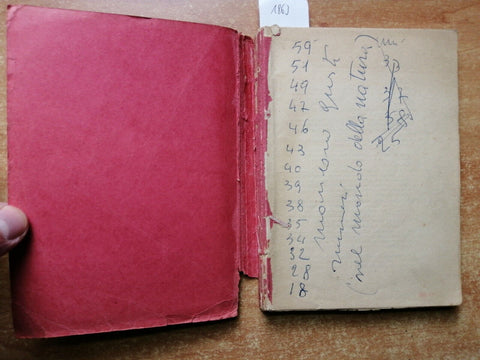 1863
59
51
49
47
46
43
40
39
38
35
34
32
28
18
mancano questi
numeri
(nel mondo della natura)